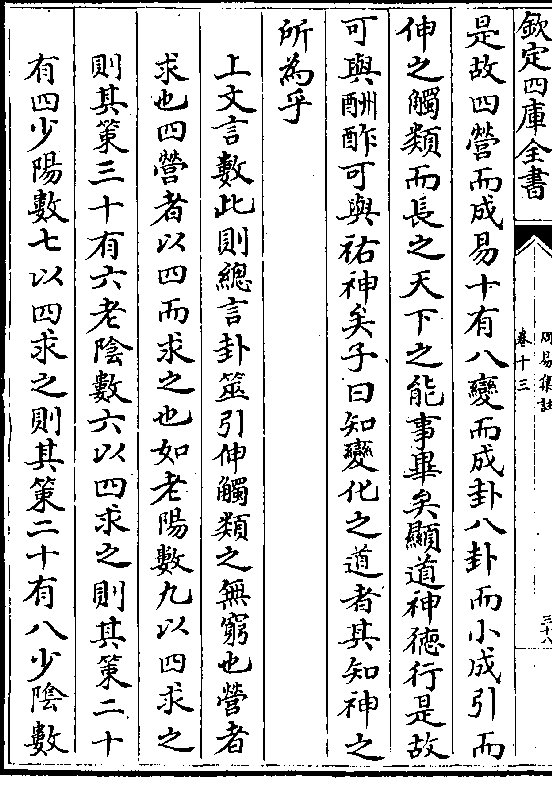 欽定四庫全書
周易集註
卷十三
三十八
是故四營而成易十有八變而成卦八卦而小成引而
伸之觸類而長之天下之能事畢矣顯道神德行是故
可與酬酢可與祐神矣子曰知變化之道者其知神之
所為乎
上文言數此則總言卦筮引伸觸類之無窮也營者
求也四營者以四而求之也如老陽數九以四求之
則其策三十有六老陰數六以四求之則其策二十
有四少陽數七以四求之則其策二十有八少陰數